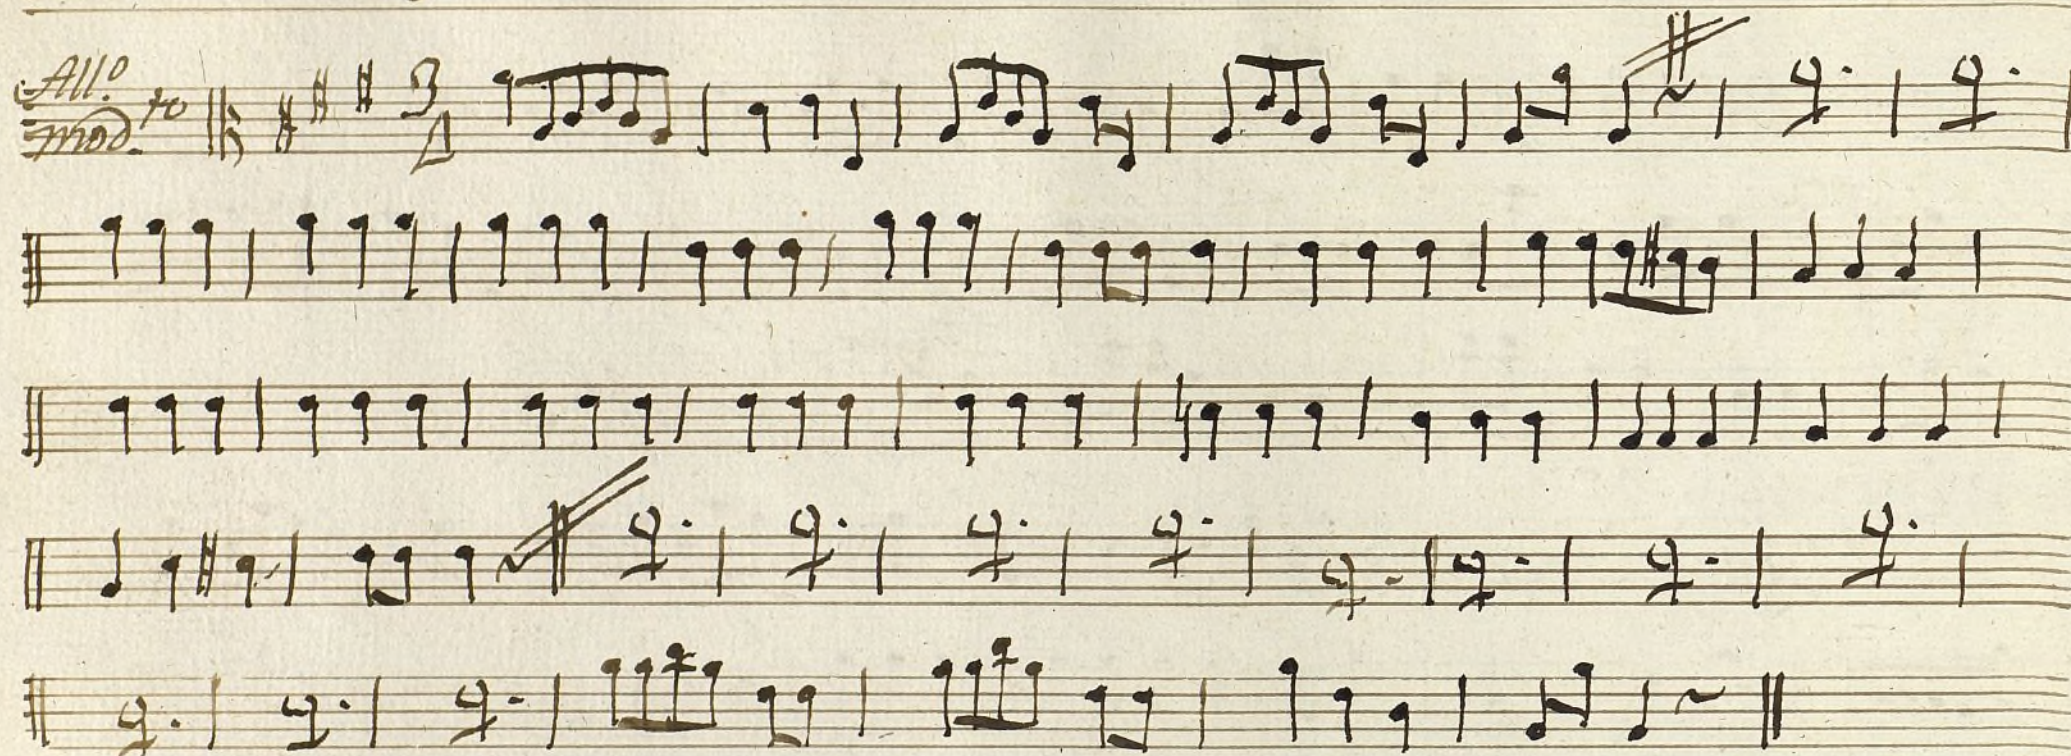 All.º
mod.to
3
4